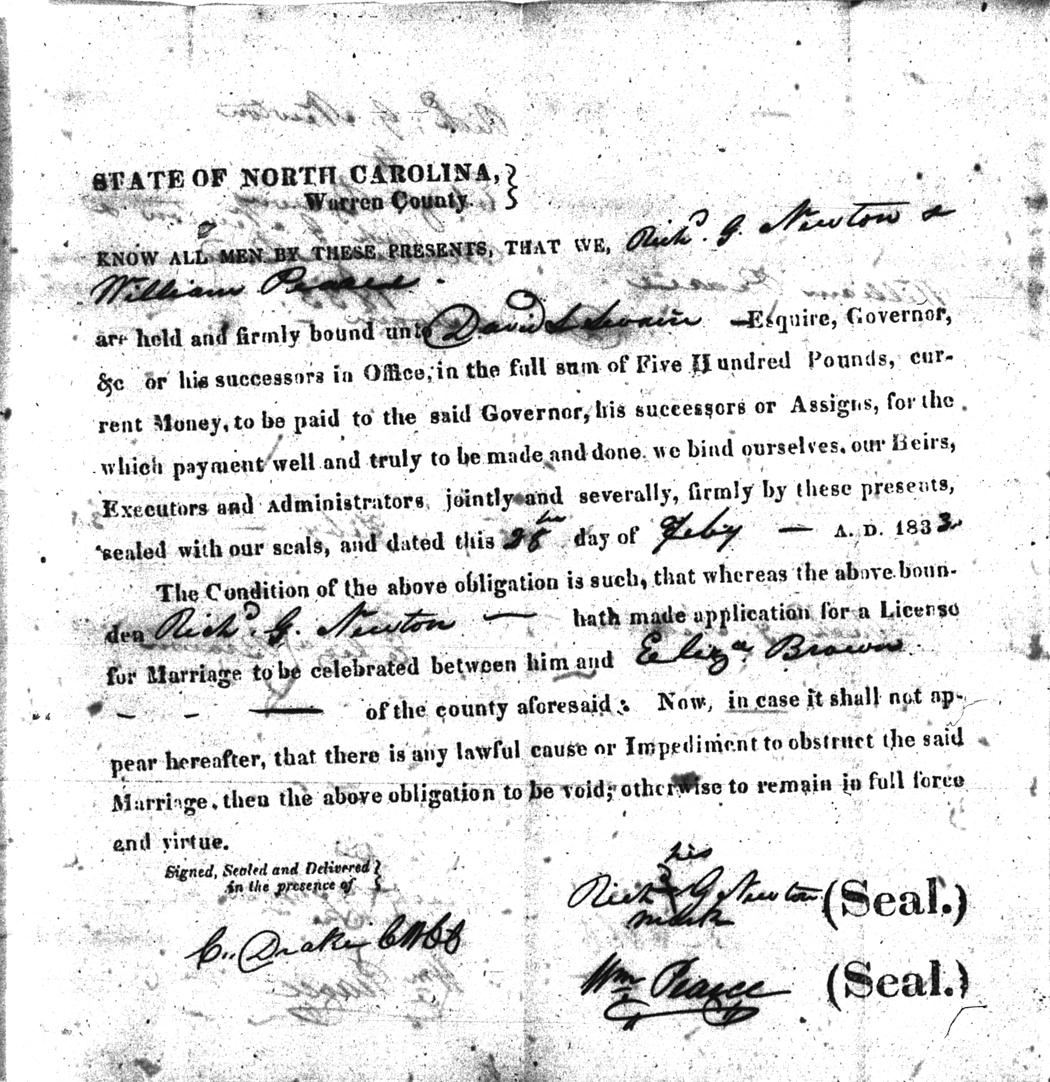 STATE OF NORTH CAROLINA,
Warren County.
KNOW ALL MEN BY THESE PRESENTS, THAT WE, Richd. G. Newton &
William Pearce.
are held and firmly bound unto David L Swain Esquire, Governor,
&c or his successors in Office, in the full sum of Five Hundred Pounds, cur-
rent Money, to be paid to the said Governor, his successors or Assigns, for the
which payment well and truly to be made and done. we bind ourselves, our Heirs,
Executors and Administrators, jointly and severally, firmly by these presents,
sealed with our seals, and dated this 28th day of Feby — A. D. 1833
The Condition of the above obligation is such, that whereas the above boun-
den Richd. G. Newton — hath made application for a License
for Marriage to be celebrated between him and Eliza. Brown
– – — of the county aforesaid: Now, in case it shall not ap-
pear hereafter, that there is any lawful cause or Impediment to obstruct the said
Marriage, then the above obligation to be void; otherwise to remain in full force
and virtue.
Signed, Sealed and Delivered
in the presence of
his
Richd G Newton (Seal.)
mark
C. Drake CWCC
Wm Pearce (Seal.)